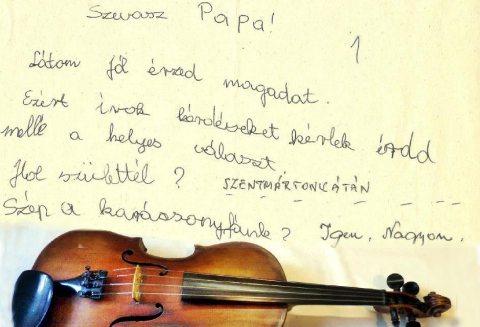 Szevasz Papa!
1
Látom jól érzed magadat.
Ezért írok kérdéseket kérlek érdd
mellé a helyes választ.
Hol születtél? SZENTMÁRTONKÁTÁN
Szép a karácsonyfánk? Igen. Nagyon.